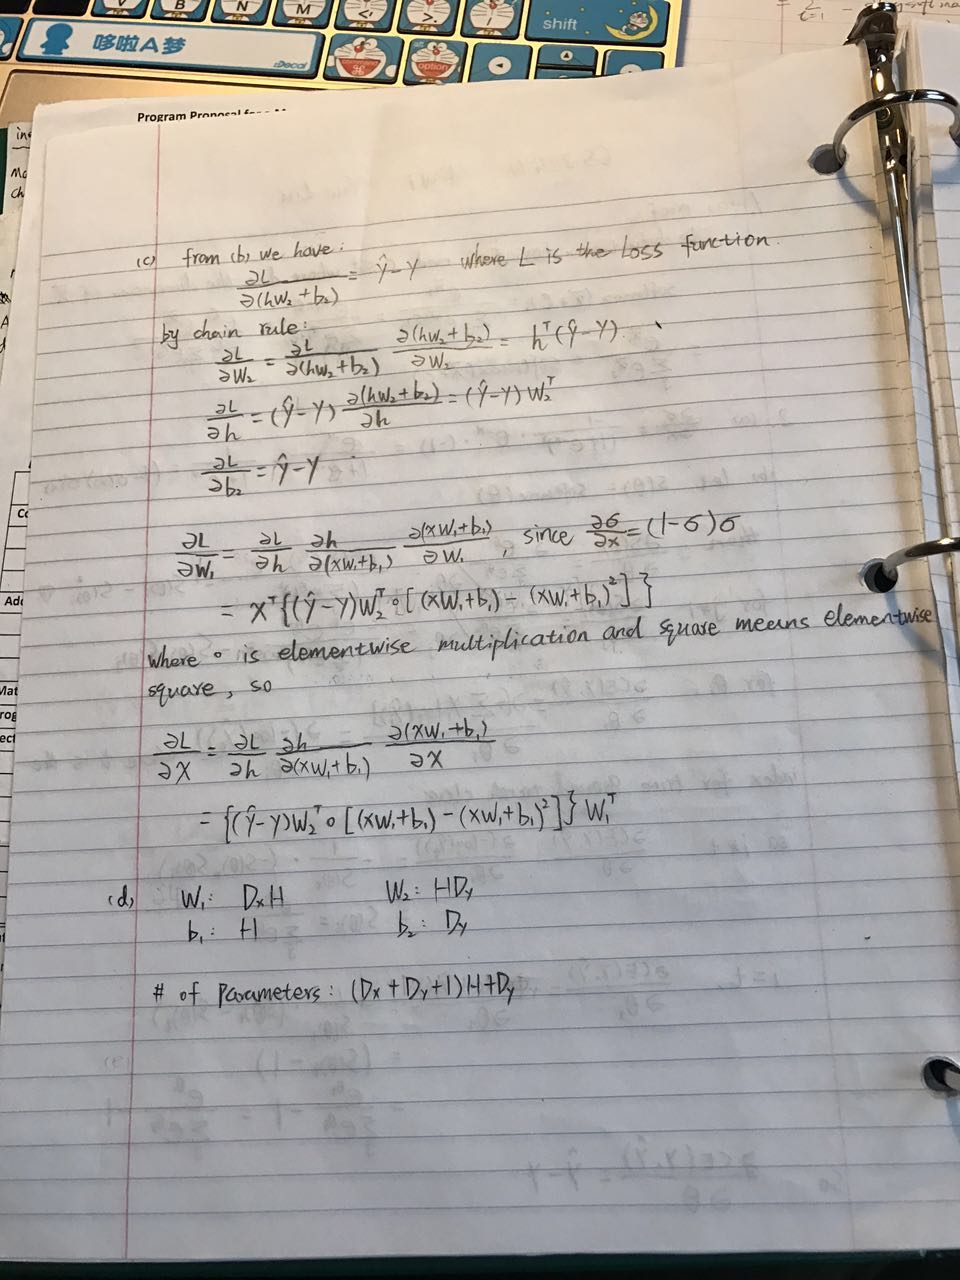 V
B
N
M
<,
>.
?/
shift
哆啦A梦
iDecal
command
⌘
option
Program Proposal for
(c) from (b) we have:
∂L/∂(hW₂+b₂) = Ŷ-Y where L is the Loss function.
by chain rule:
∂L/∂W₂ = ∂L/∂(hW₂+b₂) ∂(hW₂+b₂)/∂W₂ = hᵀ(Ŷ-Y)
∂L/∂h = (Ŷ-Y) ∂(hW₂+b₂)/∂h = (Ŷ-Y)W₂ᵀ
∂L/∂b₂ = Ŷ-Y
∂L/∂W₁ = ∂L/∂h ∂h/∂(XW₁+b₁) ∂(XW₁+b₁)/∂W₁, since ∂σ/∂x = (1-σ)σ
= Xᵀ{(Ŷ-Y)W₂ᵀ∘[(XW₁+b₁) - (XW₁+b₁)²]}
where ∘ is elementwise multiplication and square means elementwise
square, so
∂L/∂X = ∂L/∂h ∂h/∂(XW₁+b₁) ∂(XW₁+b₁)/∂X
= {(Ŷ-Y)W₂ᵀ∘[(XW₁+b₁) - (XW₁+b₁)²]}W₁ᵀ
(d) W₁: DₓH W₂: HDy
b₁: H b₂: Dy
# of Parameters: (Dₓ+Dy+1)H+Dy